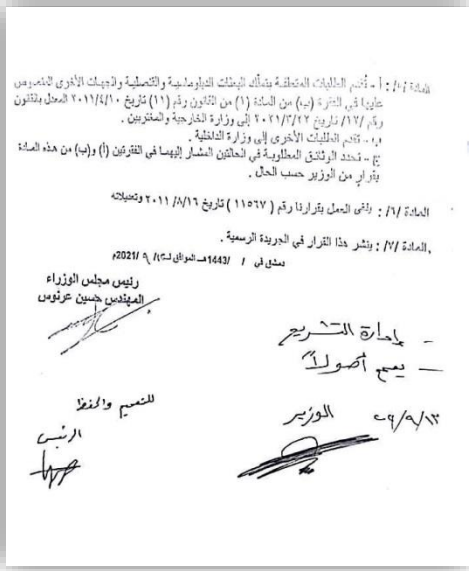 المادة /٥/ : أ - تُقدم الطلبات المتعلقة بتملك البعثات الدبلوماسية والقنصلية والجهات الأخرى المنصوص
عليها في الفقرة (ب) من المادة (١) من القانون رقم (١١) تاريخ ٢٠١١/٤/١٠ المعدل بالقانون
رقم /١٢/ تاريخ ٢٠٢١/٣/٢٢ إلى وزارة الخارجية والمغتربين .
ب - تقدم الطلبات الأخرى إلى وزارة الداخلية .
ج - تحدد الوثائق المطلوبة في الحالتين المشار إليهما في الفقرتين (أ) و(ب) من هذه المادة
بقرار من الوزير حسب الحال .
المادة /٦/ : يلغى العمل بقرارنا رقم ( ١١٥٦٧ ) تاريخ ٢٠١١ /٨/١٦ وتعديلاته
المادة /٧/ : ينشر هذا القرار في الجريدة الرسمية .
دمشق في / /1443هـ الموافق لـ /٩ /2021م
رئيس مجلس الوزراء
المهندس حسين عرنوس
- إدارة التشريع
- يعمم أصولاً
للتعميم والحفظ
الوزير
الرئيس